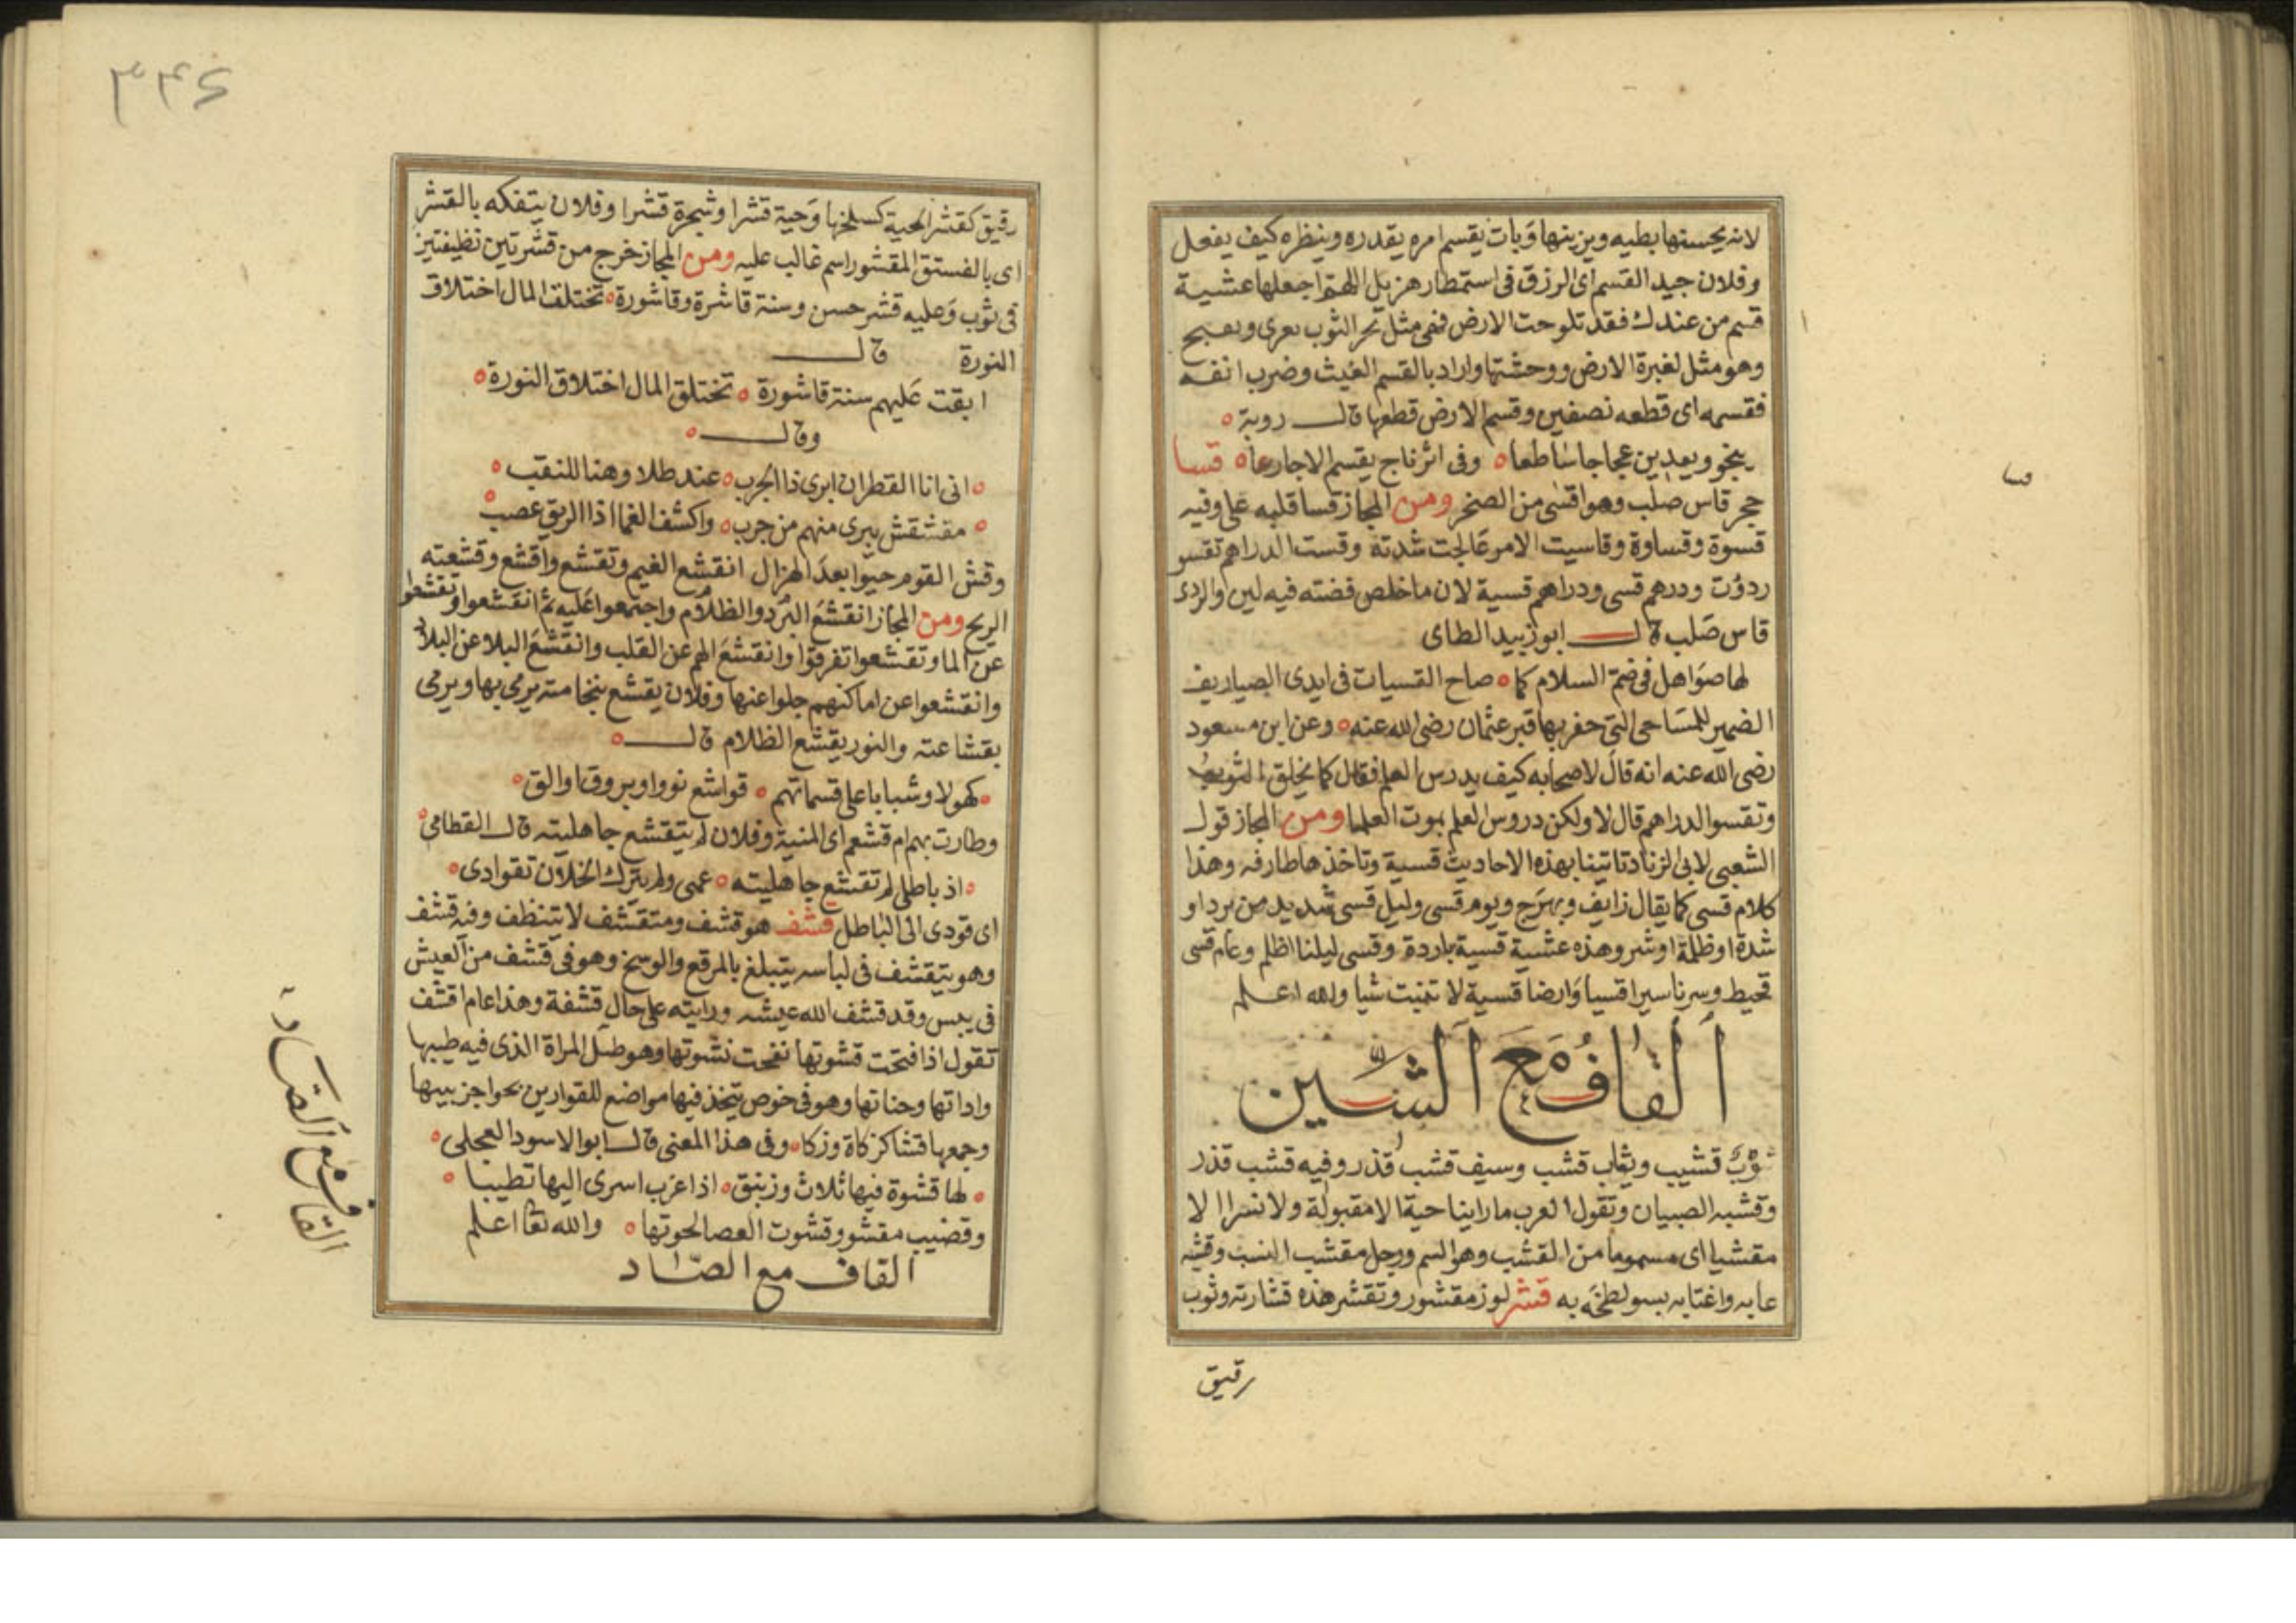 لانه يحسنها بطيه ويزينها وبات يقسم امره يقدره وينظره كيف يفعل
وفلان جيد القسم اى الرزق فى استمطار هزيل اللهم اجعلها عشية
قسم من عندك فقد تلوحت الارض فهى مثل نحر الثوب يعرى
وهو مثل لغبرة الارض ووحشتها واراد بالقسم الغيث وضرب انفه
فقسمه اى قطعه نصفين وقسم الارض قطعها قال روبة
عجاجا ساطعا وفى اثر ناج يقسم الاجارعا قسا
حجر قاس صلب وهو اقسى من الصخر ومن المجاز قسا قلبه على وفيه
قسوة وقساوة وقاسيت الامر عالجت شدته وقست الدراهم تقسو
ردؤت ودرهم قسى ودراهم قسية لان ما خلص فضته فيه لين والردى
قاس صلب قال ابو زبيد الطاى
لها صواهل فى ضم السلام كما صاح القسيات فى ايدى الصياريف
الضمير للمساحى التى حفر بها قبر عثمان رضى الله عنه وعن ابن مسعود
رضى الله عنه انه قال لاصحابه كيف يدرس العلم فقال كما يخلق الثوب
وتقسو الدراهم قال لا ولكن دروس العلم بموت العلما ومن المجاز قول
الشعبى لابى الزناد تاتينا بهذه الاحاديث قسية وتاخذها طازفه وهذا
كلام قسى كما يقال زايف وبهرج ويوم قسى وليل قسى شديد من برد او
شدة او ظلمة او شر وهذه عشية قسية باردة وقسى ليلنا اظلم وعام قسى
قحيط وسرنا سيرا قسيا وارضا قسية لا تنبت شيا والله اعلم
القاف مع الشين
ثوب قشيب وثياب قشب وسيف قشب قذر وفيه قشب قذر
وقشبه الصبيان وتقول العرب ما راينا حية الا مقبولة ولا نسرا الا
مقشبا اى مسموما من القشب وهو السم ورجل مقشب النسب وقشبه
عابه واغتابه بسو لطخه به قشر لوز مقشور وتقشر هذه قشارته وثوب
رقيق
قسا
٣٤٦
رقيق كقشر الحية كسلخها وحية قشرا وشجرة قشرا وفلان يتفكه بالقشر
اى بالفستق المقشور اسم غالب عليه ومن المجاز خرج من قشرتين نظيفتين
فى ثوب وعليه قشر حسن وسنة قاشرة وقاشورة تختلق المال اختلاق
النورة قال
ابقت عليهم سنة قاشورة تختلق المال اختلاق النورة
وقال
انى انا القطران ابرى ذا الجرب عند طلا وهنا للنقب
مقشقش يبرى منهم من جرب واكشف الغما اذا الريق عصب
وقش القوم حيوا بعد الهزال انقشع الغيم وتقشع واقشع وقشعته
الريح ومن المجاز انقشع البرد والظلام واجتمعوا عليه ثم انقشعوا وتقشعوا
عن الما وتقشعوا تفرقوا وانقشع الهم عن القلب وانقشع البلا عن البلاد
وانقشعوا عن اماكنهم جلوا عنها وفلان يقشع بنخامته يرمى بها ويرمى
بقشاعته والنور يقشع الظلام قال
كهولا وشبابا على قسماتهم قواشع نور او بروق اوالق
وطارت بهم ام قشعم اى المنية وفلان لم يتقشع جاهليته قال القطامى
اذ باطلى لم تقشع جاهليته عمى ولم يترك الخلان تقوادى
اى قودى الى الباطل قشف هو قشف ومتقشف لا يتنظف وفيه قشف
وهو يتقشف فى لباسه يتبلغ بالمرقع والوسخ وهو فى قشف من العيش
فى يبس وقد قشف الله عيشه ورايته على حال قشفة وهذا عام اقشف
تقول اذا فتحت قشوتها نفحت نشوتها وهو طبل المراة الذى فيه طيبها
واداتها وحناتها وهو فى خوص يتخذ فيها مواضع للقوارير بحواجز بينها
وجمعها قشا كزكاة وزكا وفى هذا المعنى قال ابو الاسود العجلى
لها قشوة فيها ثلاث وزنبق اذا عزب اسرى اليها تطيبا
وقضيب مقشو وقشوت العصا لحوتها والله تعا اعلم
القاف مع الصاد
القاف مع الصاد